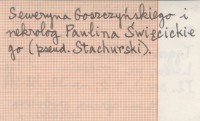 Seweryna Goszczyńskiego i
nekrolog Paulina Święcickie
go (pseud. Stachurski).